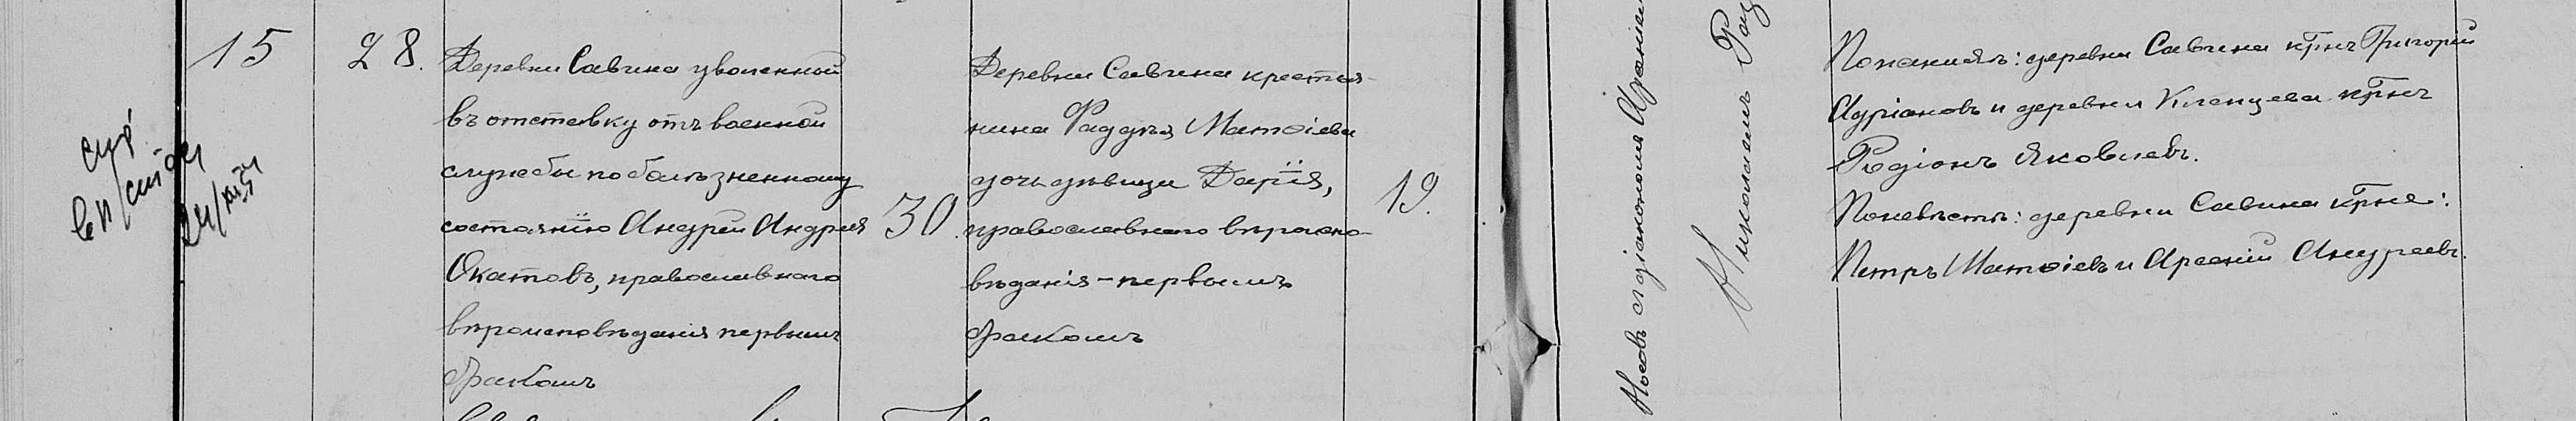 15
28.
Деревни Савина уволенной
въ отставку отъ военной
службы по болѣзненному
состоянію Андрей Андреев
Окатовъ, православнаго
вѣроисповѣданія первымъ
бракомъ
30.
Деревни Савина крестья-
нина Фаддѣя Матѳіева
дочь дѣвица Дарія,
православнаго вѣроиспо-
вѣданія – первымъ
бракомъ
19.
Николаемъ
Пожениху: деревни Савина крнъ Григорій
Адріановъ и деревни Кленцева крнъ
Родіонъ Яковлевъ.
Поневѣстѣ: деревни Савина крне:
Петръ Матѳіевъ и Арсеній Андреевъ.